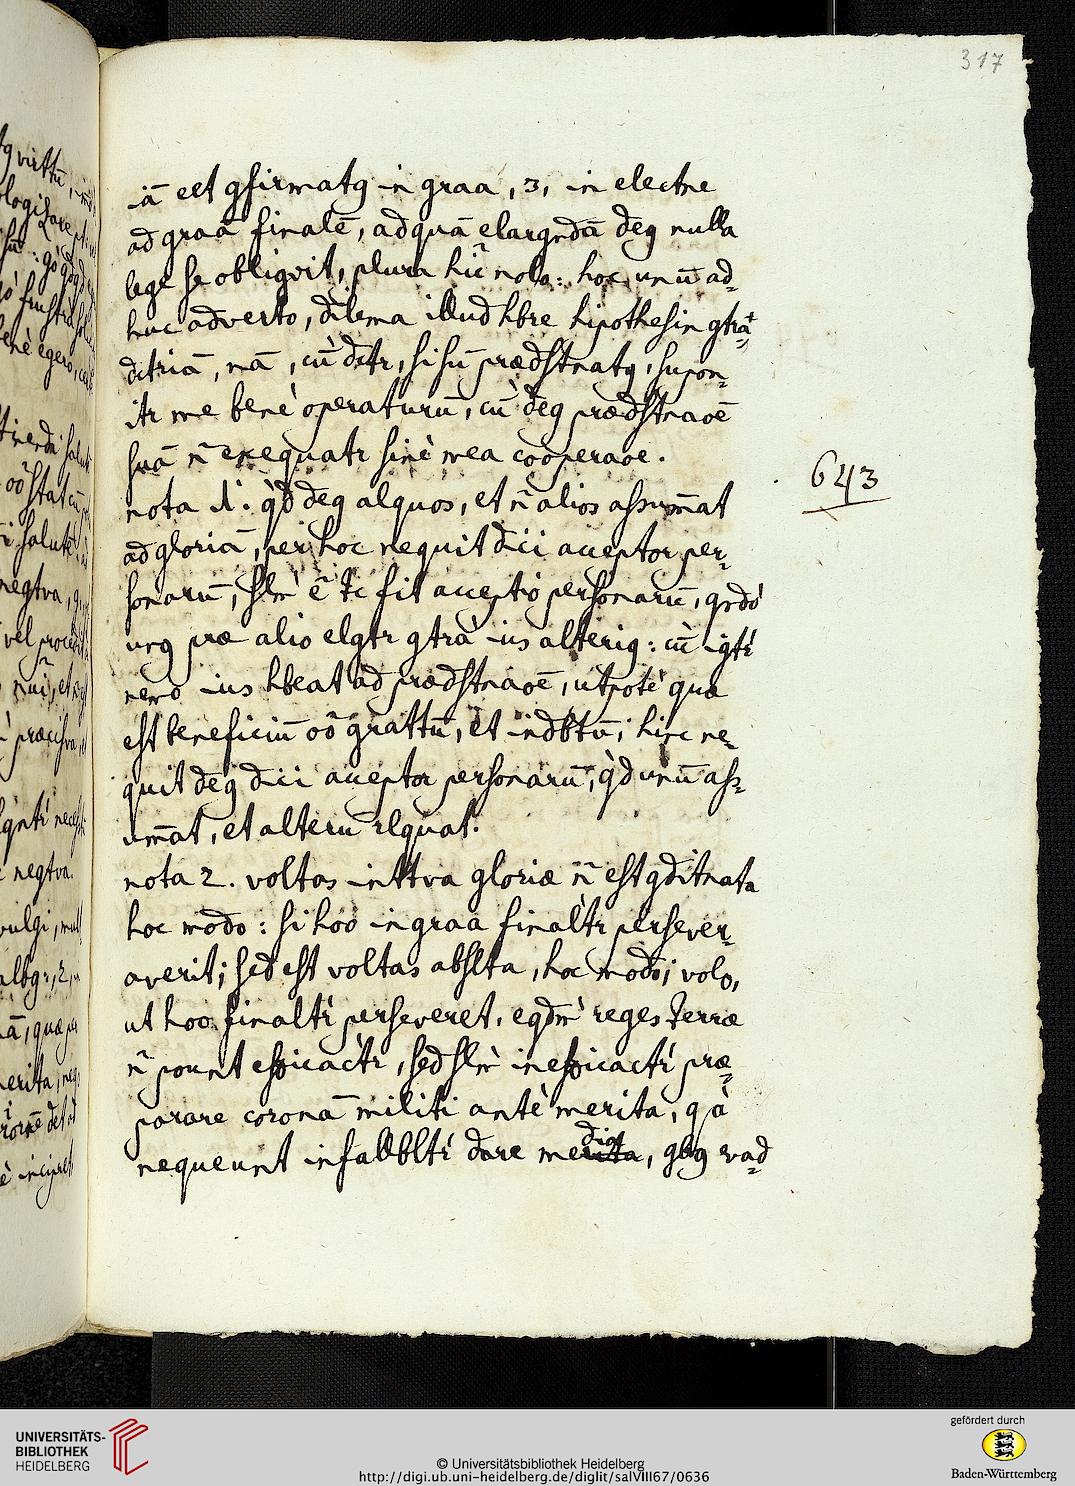 317
iā eēt gfirmatg in graa, 3, in electne
ad graā finalē, ad quā elargndā deg nulla
lege se obligvit, plura hic nolo: hoc unū ad-
huc adverto, dilema illud hbre hipothesin gtrà-
ditriā, nā, cū ditr, si sū prædstnatg, supon-
itr me benè operaturū, cū deg prædstnaoē
suā n̄ exequatr sinè mea cooperaoe.
643
nota 1: qd deg alquos, et n̄ alios assum̄at
ad gloriā, per hoc nequit dici acceptor per-
sonarū, slm̀ ē tc fit acceptio personarū, qndò
ung præ alio elgtr gtrà ius alterig: cū igtr
nemo ius hbeat ad prædstnaoē, utpotè quæ
est beneficiū oō grattū, et indbtū; hinc ne-
quit deg dici acceptor personarū, qd unū ass-
um̄at, et alterū rlquat.
nota 2. voltas inttva gloriæ n̄ est gditnata
hoc modo: si hoo in graa finaltr persever-
averit; sed est voltas abslta, hoc modo; volo,
ut hoo finaltr perseveret, eqdm̀ reges terræ
n̄ pount efficactr, sed slm̀ inefficactr præ-
parare coronā militi antè merita, qà
nequeunt infallbltr dare media, gbg vad-
UNIVERSITÄTS-
BIBLIOTHEK
HEIDELBERG
© Universitätsbibliothek Heidelberg
http://digi.ub.uni-heidelberg.de/diglit/salVIII67/0636
gefördert durch
Baden-Württemberg